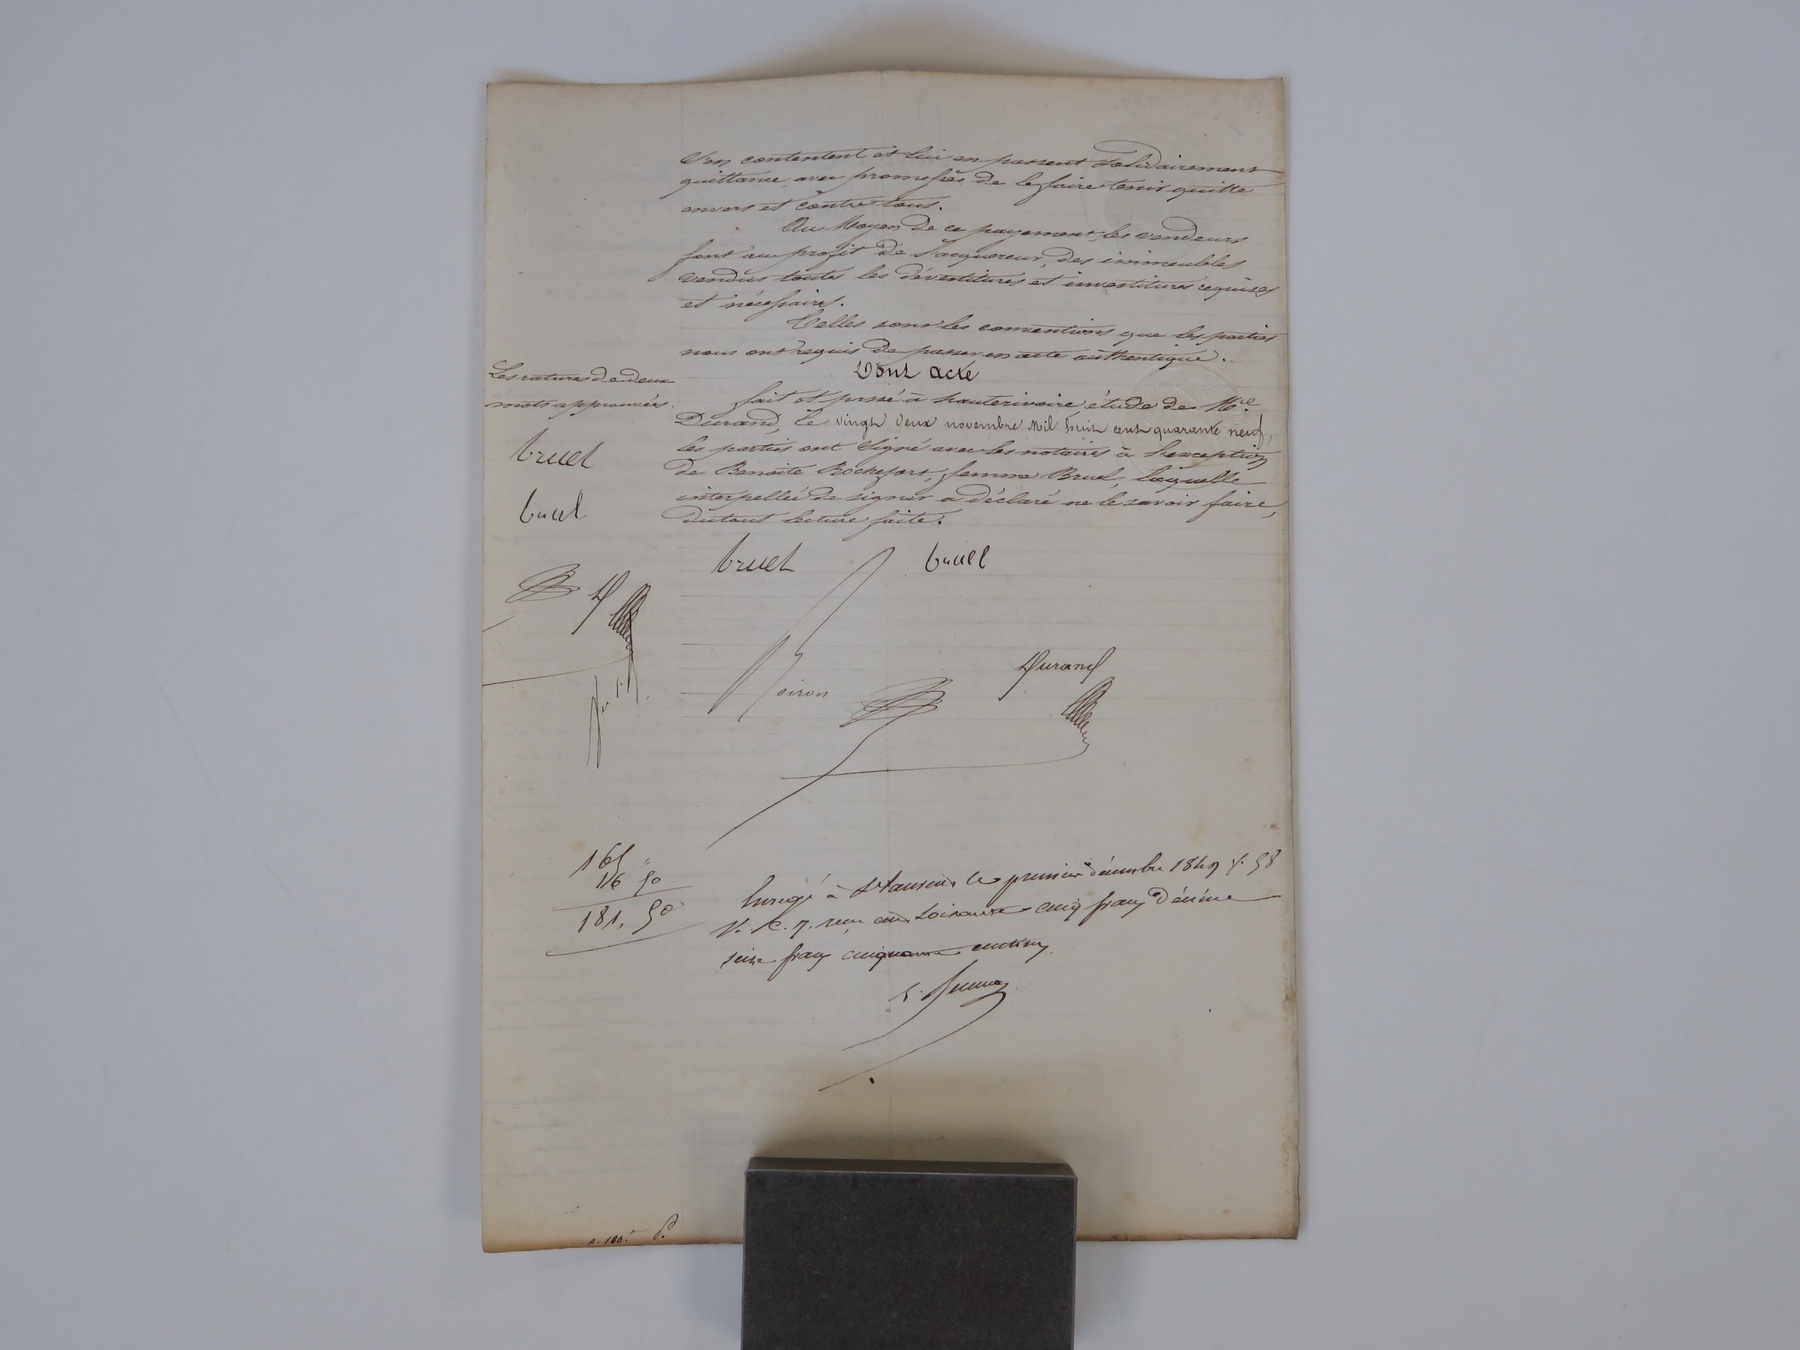 s'en contentent et lui en passent solidairement
quittance, avec promesse de le faire tenir quitte
envers et contre tous.
Au Moyen de ce payement, les vendeurs
font au profit de l'acquéreur, des immeubles
vendus toutes les dévestitures et investitures requises
et nécessaires.
Telles sont les conventions que les parties
nous ont requis de passer en acte authentique.
Dont acte
fait et passé à hauterivoire, étude de Me
Durand, le vingt deux novembre Mil huit cent quarante neuf,
les parties ont signé avec les notaires à l'exception
de Benoite Rochefort, femme Bruel, laquelle
interpellée de signer a déclaré ne le savoir faire,
dutout lecture faite.
Les ratures de deux
mots approuvées.
bruel
bruel
D
bruel bruel
Durand
165 "
16 50
181, 50
Enregé à St Laurent le premier décembre 1849 f. 58
V. C. 7. reçu cent soixante cinq francs Décime
seize francs cinquante centimes